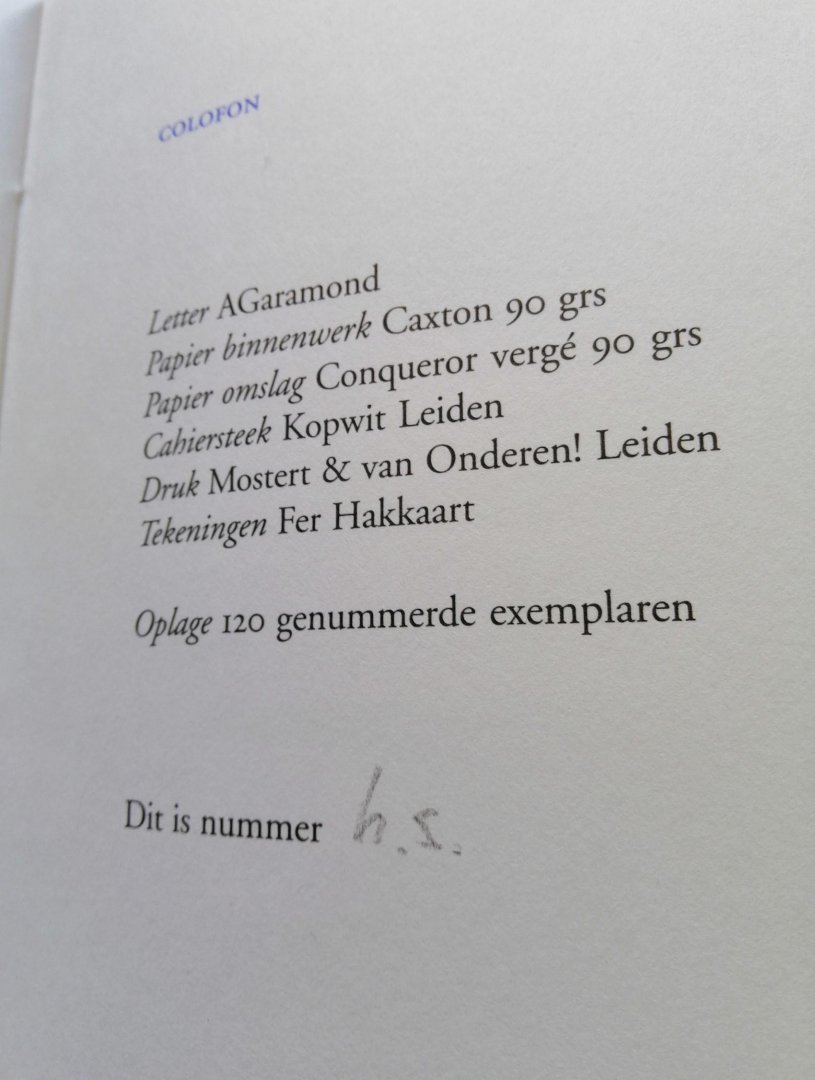 COLOFON
Letter AGaramond
Papier binnenwerk Caxton 90 grs
Papier omslag Conqueror vergé 90 grs
Cahiersteek Kopwit Leiden
Druk Mostert & van Onderen! Leiden
Tekeningen Fer Hakkaart
Oplage 120 genummerde exemplaren
Dit is nummer h.s.